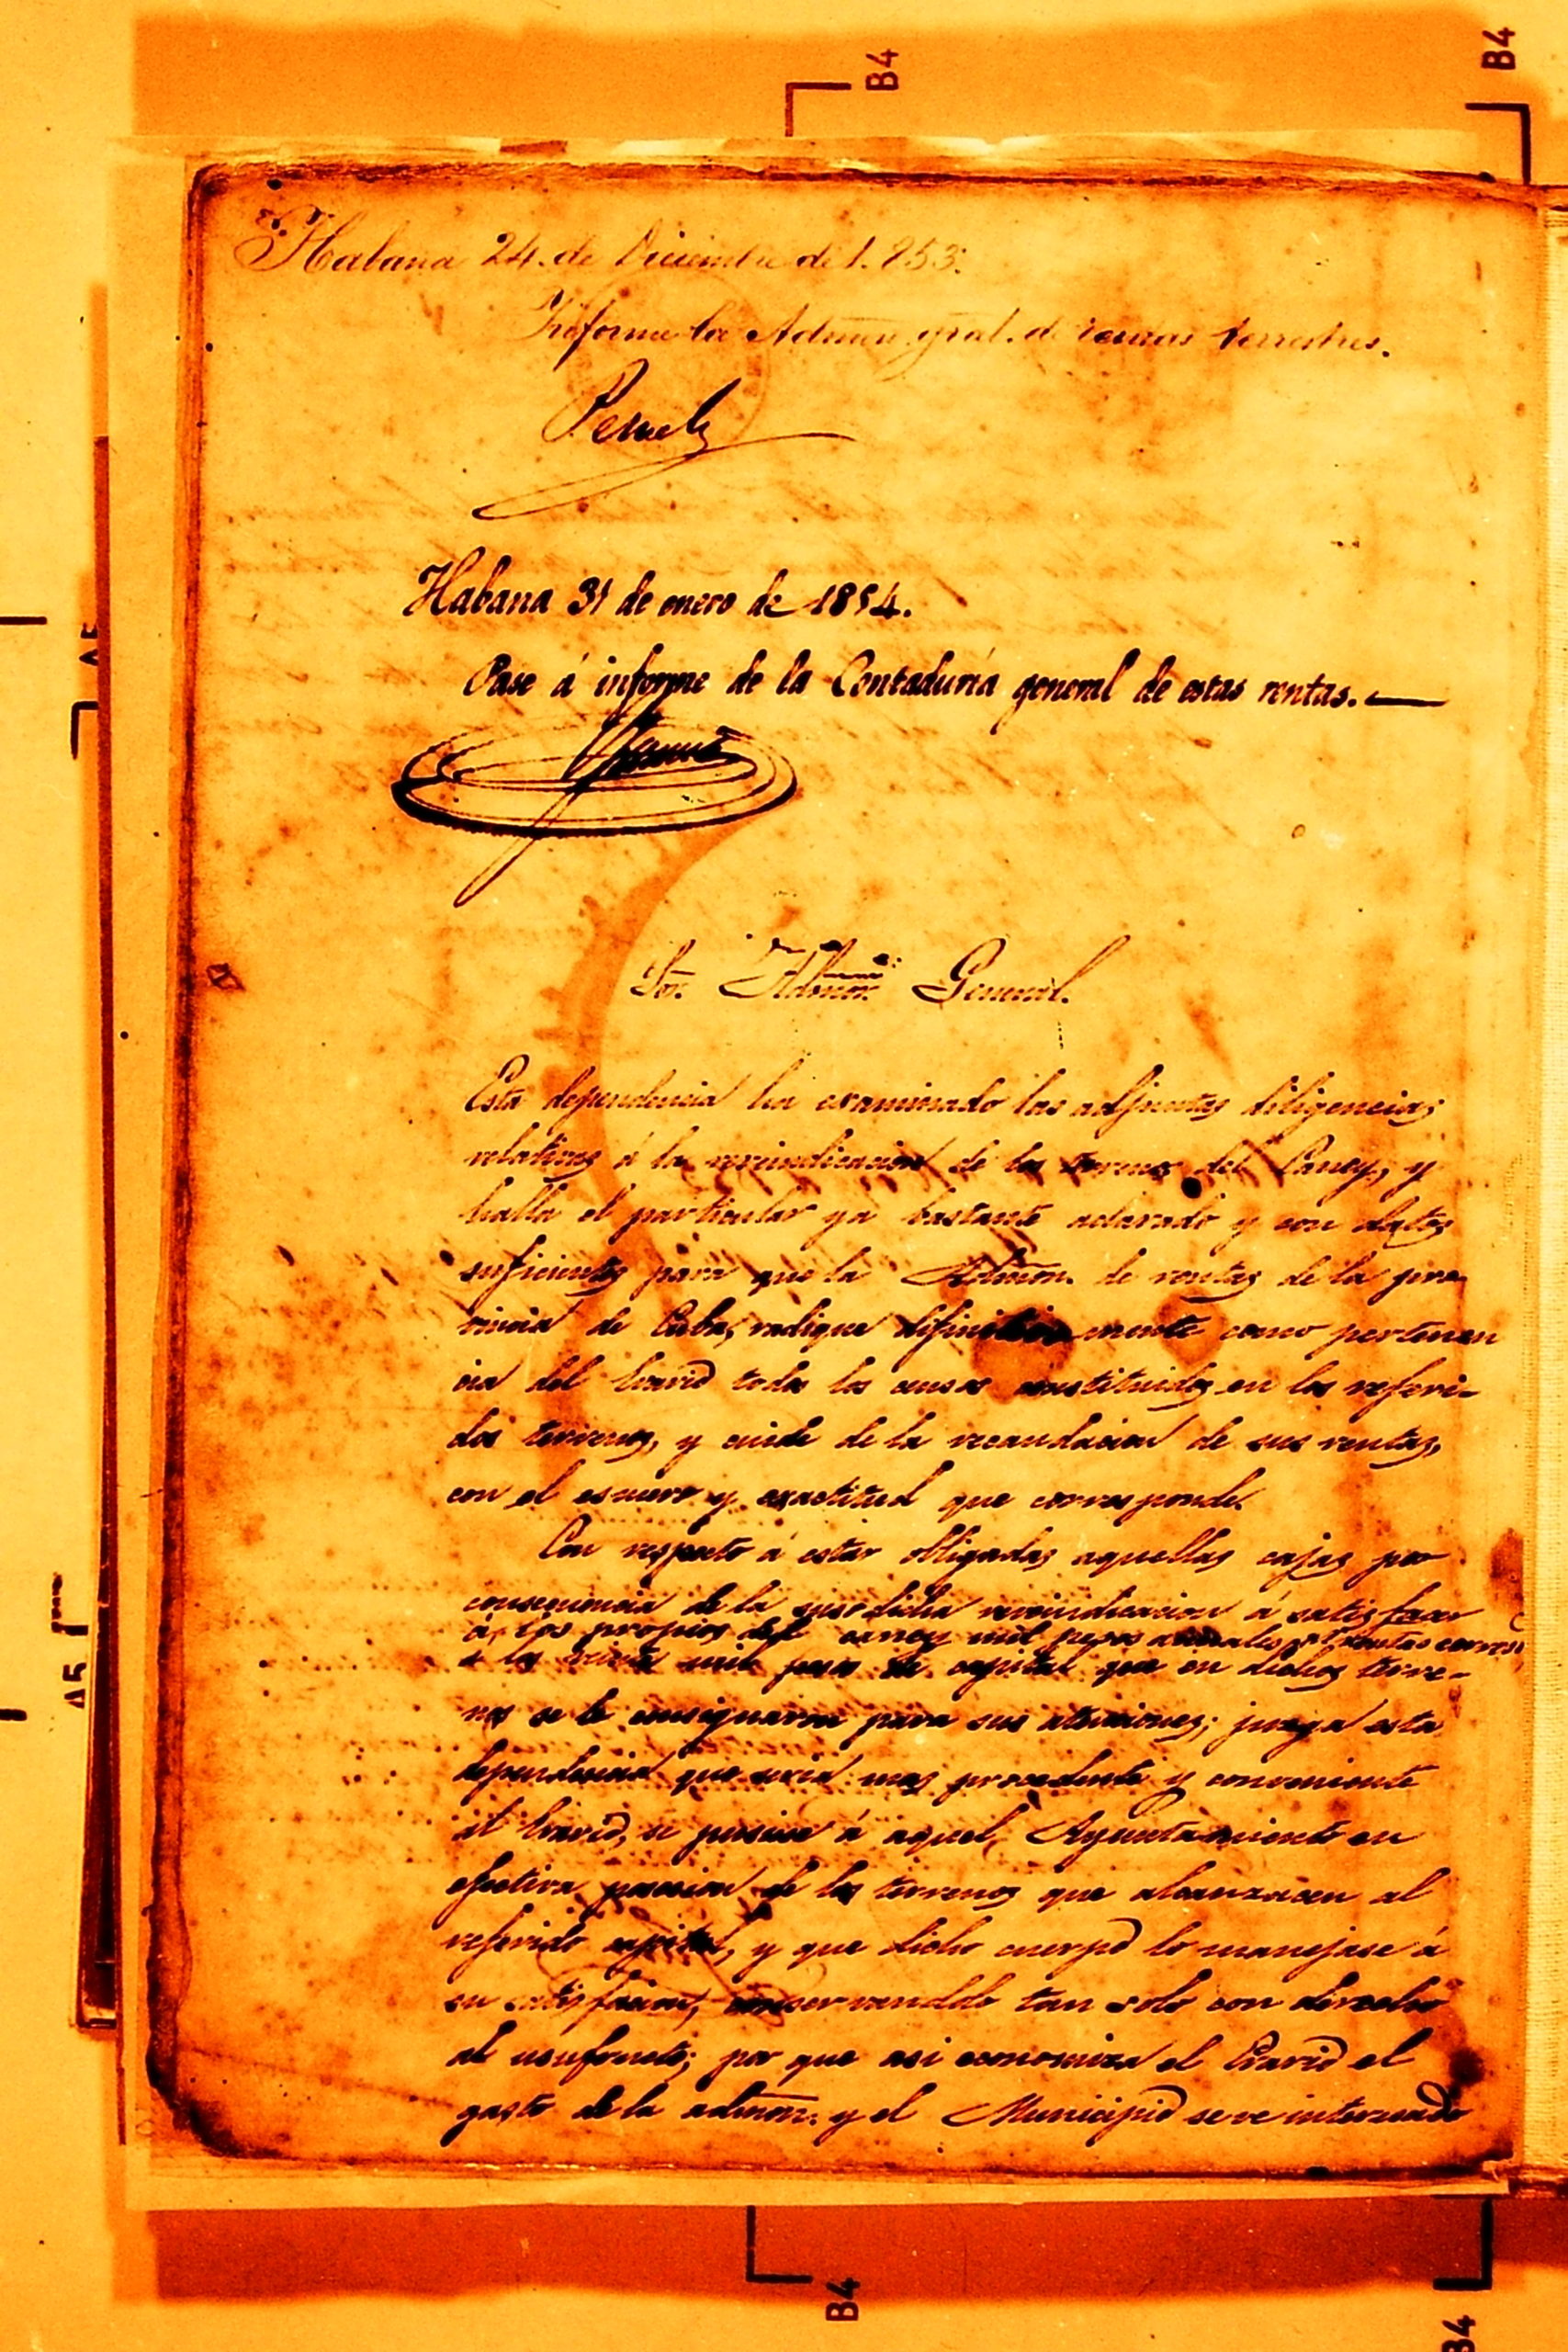 B4
B4
Habana 24. de Diciembre de 1.853.
Informe la Admon. gral. de rentas terrestres.
Pezuela
Habana 31 de enero de 1854.
Pase á informe de la Contaduría general de estas rentas.
Sor. Admor. General.
Esta dependencia ha examinado las adjuntas diligencias
relativas á la reveindicacion de los terrenos del Caney, y
halla el particular ya bastante aclarado y con datos
suficientes para que la Admon. de rentas de la pro-
vincia de Cuba, radique difinitivamente como pertenen
cia del Erario todos los censos constituidos en los referi-
dos terrenos, y cuide de la recaudacion de sus rentas,
con el esmero y exactitud que corresponde.
Con respecto á estar obligadas aquellas cajas por
consecuencia de la susodicha reveindicacion á satisfacer
á los propios del caney mil pesos anuales pr. rentas
á los veinte mil pesos de capital que en dichos terre-
nos se le consignaron para sus atenciones; juzga esta
dependencia que seria mas procedente y conveniente
al Erario, se pusiese á aquel Ayuntamiento en
efectiva posesion de los terrenos que alcanzasen al
referido capital, y que dicho cuerpo lo manejase á
su satisfacion, conservandolo tan solo con derecho
al usufructo; por que asi economiza el Erario el
gasto de la admon. y el Municipio se ve interezado
A5
A5
B4
B4